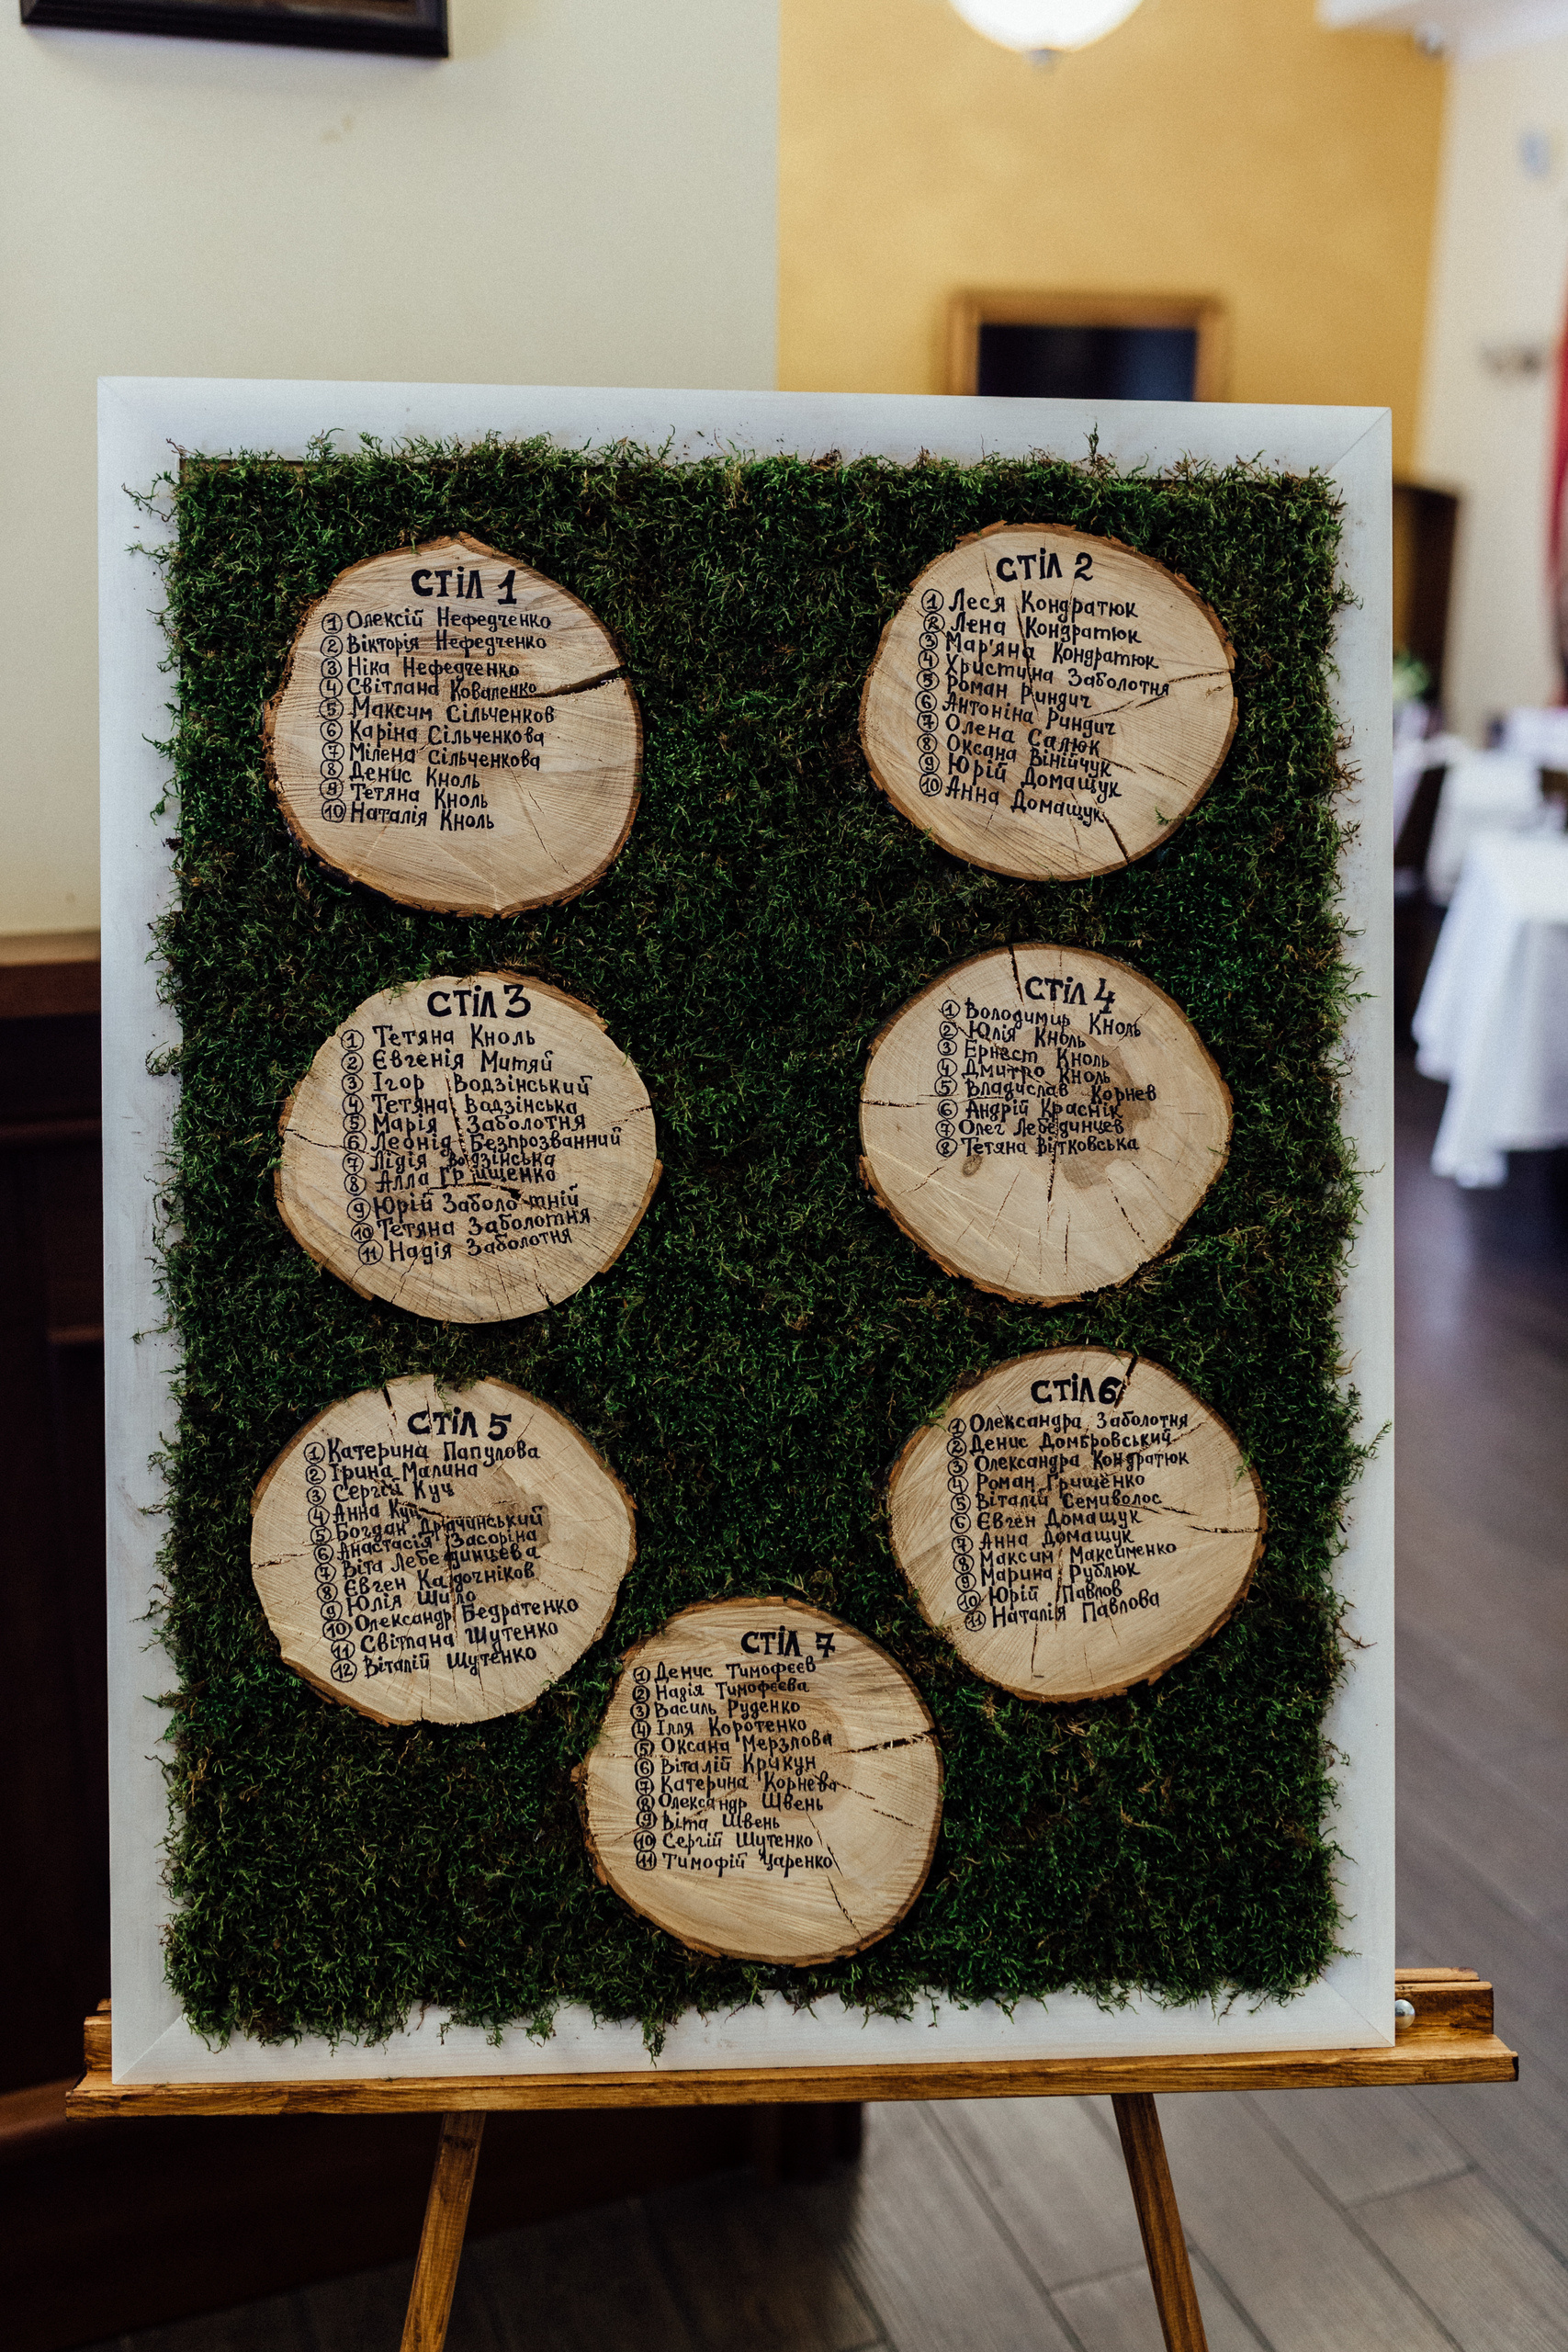 СТіЛ 1
1 Олексій Нефедченко
2 Вікторія Нефедченко
3 Ніка Нефедченко
4 Світлана Коваленко
5 Максим Сільченков
6 Каріна Сільченкова
7 Мілена Сільченкова
8 Денис Кноль
9 Тетяна Кноль
10 Наталія Кноль
СТіЛ 2
1 Леся Кондратюк
2 Лена Кондратюк
3 Мар'яна Кондратюк
4 Христина Заболотня
5 Роман Риндич
6 Антоніна Риндич
7 Олена Салюк
8 Оксана Вінійчук
9 Юрій Домащук
10 Анна Домащук
СТіЛ 3
1 Тетяна Кноль
2 Євгенія Митяй
3 Ігор Водзінський
4 Тетяна Водзінська
5 Марія Заболотня
6 Леонід Безпрозванний
7 Лідія Водзінська
8 Алла Грищенко
9 Юрій Заболотній
10 Тетяна Заболотня
11 Надія Заболотня
СТіЛ 4
1 Володимир Кноль
2 Юлія Кноль
3 Ернест Кноль
4 Дмитро Кноль
5 Владислав Корнев
6 Андрій Краснік
7 Олег Лебединцев
8 Тетяна Вітковська
СТіЛ 5
1 Катерина Папулова
2 Ірина Малина
3 Сергій Куч
4 Анна Куч
5 Богдан Драчинський
6 Анастасія Засоріна
7 Віта Лебединцева
8 Євген Кадочніков
9 Юлія Шило
10 Олександр Бедратенко
11 Світлана Шутенко
12 Віталій Шутенко
СТіЛ 6
1 Олександра Заболотня
2 Денис Домбровський
3 Олександра Кондратюк
4 Роман Грищенко
5 Віталій Семиволос
6 Євген Домащук
7 Анна Домащук
8 Максим Максименко
9 Марина Рублюк
10 Юрій Павлов
11 Наталія Павлова
СТіЛ 7
1 Денис Тимофєєв
2 Надія Тимофєєва
3 Василь Руденко
4 Ілля Коротенко
5 Оксана Мерзлова
6 Віталій Крикун
7 Катерина Корнева
8 Олександр Швень
9 Віта Швень
10 Сергій Шутенко
11 Тимофій Царенко